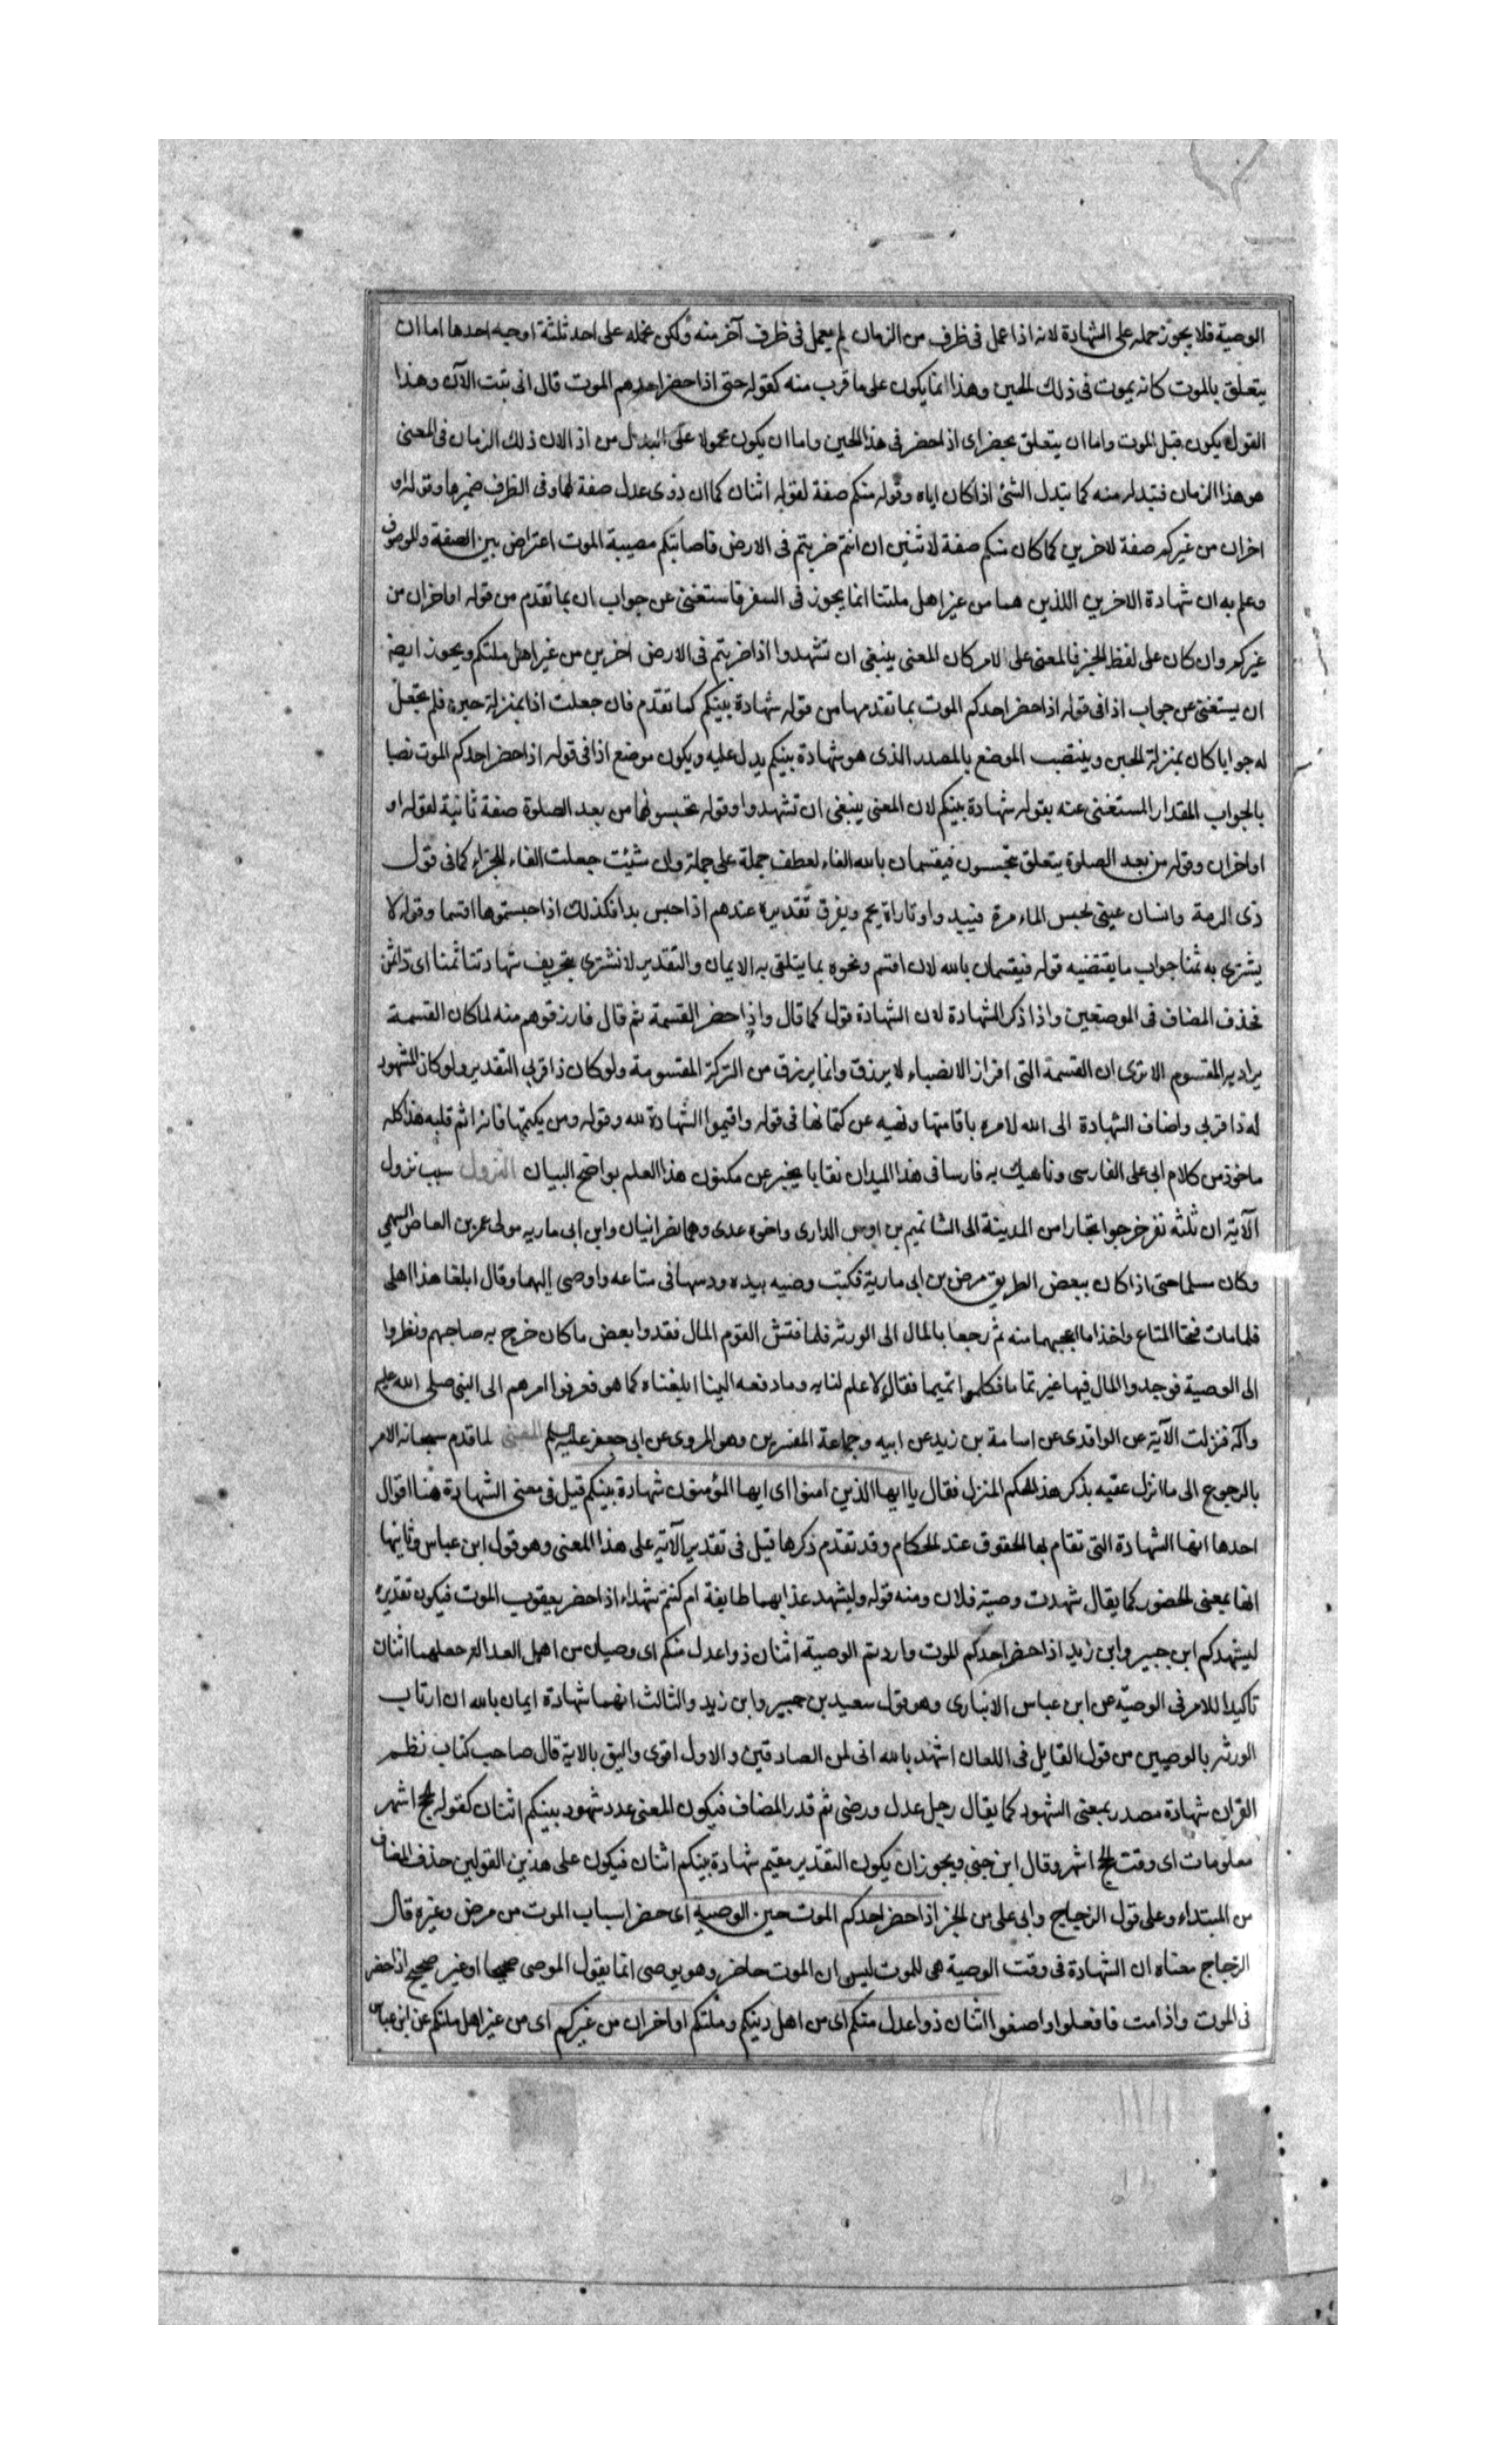 الوصية فلا يجوز حمله على الشهادة لانه اذا عمل فى ظرف من الزمان لم يعمل فى ظرف آخر منه ولكن تحمله على احد ثلثة اوجه احدها اما ان
يتعلق بالموت كانه يموت فى ذلك الحين وهذا انما يكون على ما قرب منه كقوله حتى اذا حضر احدهم الموت قال انى تبت الآن وهذا
القول يكون قبل الموت واما ان يتعلق بحضر اى اذا حضر فى هذا الحين واما ان يكون محمولا على البدل من اذ الان ذلك الزمان فى المعنى
هو هذا الزمان فتبدله منه كما يتبدل الشئ اذا كان اياه وقوله منكم صفة لقوله اثنان كما ان ذوى عدل صفة لهما وفى الظرف ضميرها وقوله او
اخران من غيركم صفة لاخرين كما كان منكم صفة لاثنين ان انتم ضربتم فى الارض فاصابتكم مصيبة الموت اعتراض بين الصفة والموصوف
وعلم به ان شهادة الاخرين اللذين هما من غير اهل ملتنا انما يجوز فى السفر فاستغنى عن جواب ان بما تقدم من قوله او اخران من
غيركم وان كان على لفظ الخبر فالمعنى على الامر كان المعنى ينبغى ان تشهدوا اذا ضربتم فى الارض اخرين من غير اهل ملتكم ويجوز ايضا
ان يستغنى عن جواب اذا فى قوله اذا حضر احدكم الموت بما تقدمها من قوله شهادة بينكم كما تقدم فان جعلت اذا بمنزلة حين فلم تجعل
له جوابا كان بمنزلة الحين وينتصب الموضع بالمصدر الذى هو شهادة بينكم يدل عليه ويكون موضع اذا فى قوله اذا حضر احدكم الموت نصبا
بالجواب المقدار المستغنى عنه بقوله شهادة بينكم لان المعنى ينبغى ان تشهدوا وقوله تحبسونهما من بعد الصلوة صفة ثانية لقوله او
او اخران وقوله من بعد الصلوة يتعلق بتحبسون فيقسمان بالله الفاء لعطف جملة على جملة وان شئت جعلت الفاء للجزاء كما فى قول
ذى الرمة وانسان عينى يحبس الماء مرة فيبيد واوتاراة يجم ويغرق تقديره عندهم اذا حبس بدا فكذلك اذا حبستموها اقسما وقوله لا
يشترى به ثمنا جواب ما يقتضيه قوله فيقسمان بالله لان اقسم ونحوه بما يتلقى به الايمان والتقدير لا نشترى بتحريف شهادتنا ثمنا اى ذا ثمن
فحذف المضاف فى الموضعين واذا ذكر الشهادة لان الشهادة قول كما قال واذا حضر القسمة ثم قال فارزقوهم منه لما كان القسمة
يراد به المقسوم الا ترى ان القسمة التى افراز الانصباء لا يرزق وانما يرزق من التركة المقسومة ولو كان ذا قربى التقدير ولو كان المشهود
له ذا قربى واضاف الشهادة الى الله لامره باقامتها ونهيه عن كتمانها فى قوله واقيموا الشهادة لله وقوله ومن يكتمها فانه اثم قلبه هذا كله
ماخوذ من كلام ابى على الفارسى وناهيك به فارسا فى هذا الميدان نقابا يخبر عن مكنون هذا العلم بواضح البيان النزول سبب نزول
الآية ان ثلثه نفر خرجوا تجارا من المدينة الى الشا تميم بن اوس الدارى واخوه عدى وهما نصرانيان وابن ابى ماريه مولى عمر بن العاص السهمى
وكان مسلما حتى اذا كان ببعض الطريق مرض بن ابى مارية فكتب وصيه بيده ودسها فى متاعه واوصى اليهما وقال ابلغا هذا اهلى
فلما مات فتحا المتاع واخذا ما اعجبهما منه ثم رجعا بالمال الى الورثه فلما فتش القوم المال فقدوا بعض ما كان خرج به صاحبهم ونظروا
الى الوصية فوجدوا المال فيها غير تما ما فكلموا تميما فقال لا علم لنا به وما دفعه الينا ابلغناه كما هو فعرفوا امرهم الى النبى صلى الله عليه
واله فنزلت الآية عن الواقدى عن اسامة بن زيد عن ابيه وجماعة المفسرين وهو المروى عن ابى جعفر عليه السلم المعنى لما قدم سبحانه الامر
بالرجوع الى ما انزل عقبه بذكر هذا الحكم المنزل فقال يا ايها الذين امنوا اى ايها المؤمنون شهادة بينكم قيل فى معنى الشهادة هنا اقوال
احدها انها الشهادة التى تقام بها الحقوق عند الحكام وقد تقدم ذكرها قيل فى تقدير الآية على هذا المعنى وهو قول ابن عباس وثانيها
انها بمعنى الحضور كما يقال شهدت وصية فلان ومنه قوله وليشهد عذابهما طايفة ام كنتم شهداء اذ حضر يعقوب الموت فيكون تقديره
ليشهدكم ابن جبير وابن زيد اذا حضر احدكم الموت واردتم الوصية اثنان ذوا عدل منكم اى وصيان من اهل العدالة جعلهما اثنان
تاكيدا للامر فى الوصية عن ابن عباس الانبارى وهو قول سعيد بن جبير وابن زيد والثالث انهما شهادة ايمان بالله ان ارتاب
الورثه بالوصيين من قول القايل فى اللعان اشهد بالله انى لمن الصادقين والاول اقوى واليق بالاية قال صاحب كتاب نظم
القران شهادة مصدر بمعنى الشهود كما يقال رجل عدل ورضى ثم قدر المضاف فيكون المعنى عدد شهود بينكم اثنان كقوله الحج اشهر
معلومات اى وقت الحج اشهر وقال ابن جنى ويجوز ان يكون التقدير مقيم شهادة بينكم اثنان فيكون على هذين القولين حذف المضاف
من المبتداء وعلى قول الزجاج وابى على من الخبر اذا حضر احدكم الموت حين الوصية اى حضر اسباب الموت من مرض وغيره قال
الزجاج معناه ان الشهادة فى وقت الوصية هى للموت ليس ان الموت حاضر وهو يوصى انما يقول الموصى صحيحا او غير صحيح اذا حضر
نى الموت واذا مت فافعلوا واصنعوا اثنان ذوا عدل منكم اى من اهل دينكم وملتكم او اخران من غيركم اى من غير اهل ملتكم عن ابن عباس